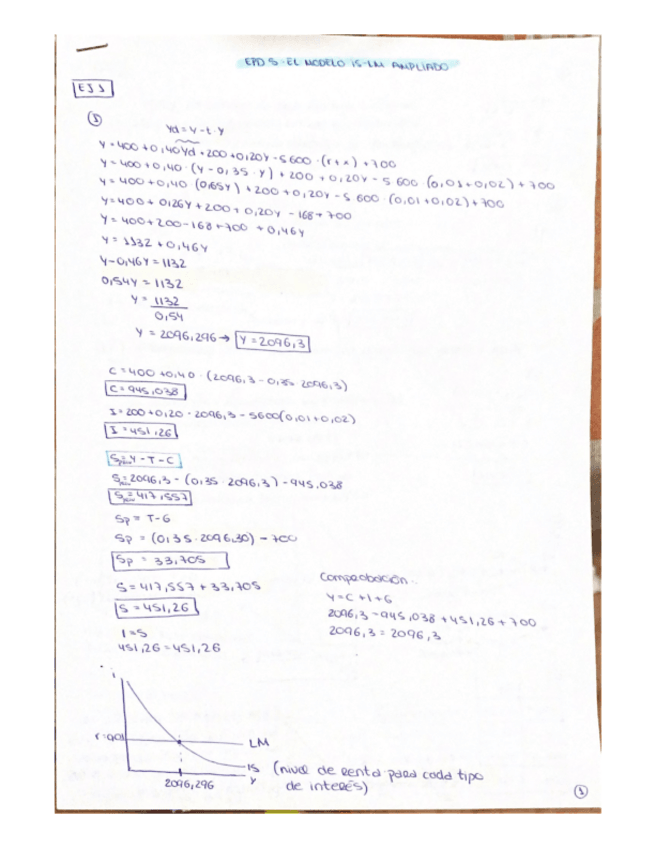 EPD 5 - EL MODELO IS-LM AMPLIADO
EJ 1
①
Yd = Y - t · Y
Y = 400 + 0,40Yd + 200 + 0,20Y - 5600 · (r + x) + 700
Y = 400 + 0,40 · (Y - 0,35 · Y) + 200 + 0,20Y - 5 600 (0,01 + 0,02) + 700
Y = 400 + 0,40 · (0,65Y) + 200 + 0,20Y - 5 600 · (0,01 + 0,02) + 700
Y = 400 + 0,26Y + 200 + 0,20Y - 168 + 700
Y = 400 + 200 - 168 + 700 + 0,46Y
Y = 1132 + 0,46Y
Y - 0,46Y = 1132
0,54Y = 1132
Y = 1132
0,54
Y = 2096,296 → Y = 2096,3
C = 400 + 0,40 · (2096,3 - 0,35 · 2096,3)
C = 945,038
I = 200 + 0,20 · 2096,3 - 5600(0,01 + 0,02)
I = 451,26
S = Y - T - C
S = 2096,3 - (0,35 · 2096,3) - 945,038
S = 417,557
Sp = T - G
Sp = (0,35 · 2096,30) - 700
Sp = 33,705
S = 417,557 + 33,705
S = 451,26
I = S
451,26 = 451,26
Comprobación:
Y = C + I + G
2096,3 = 945,038 + 451,26 + 700
2096,3 = 2096,3
i
r = 0,01
LM
IS (nivel de renta para cada tipo
de interés)
Y
2096,296
①